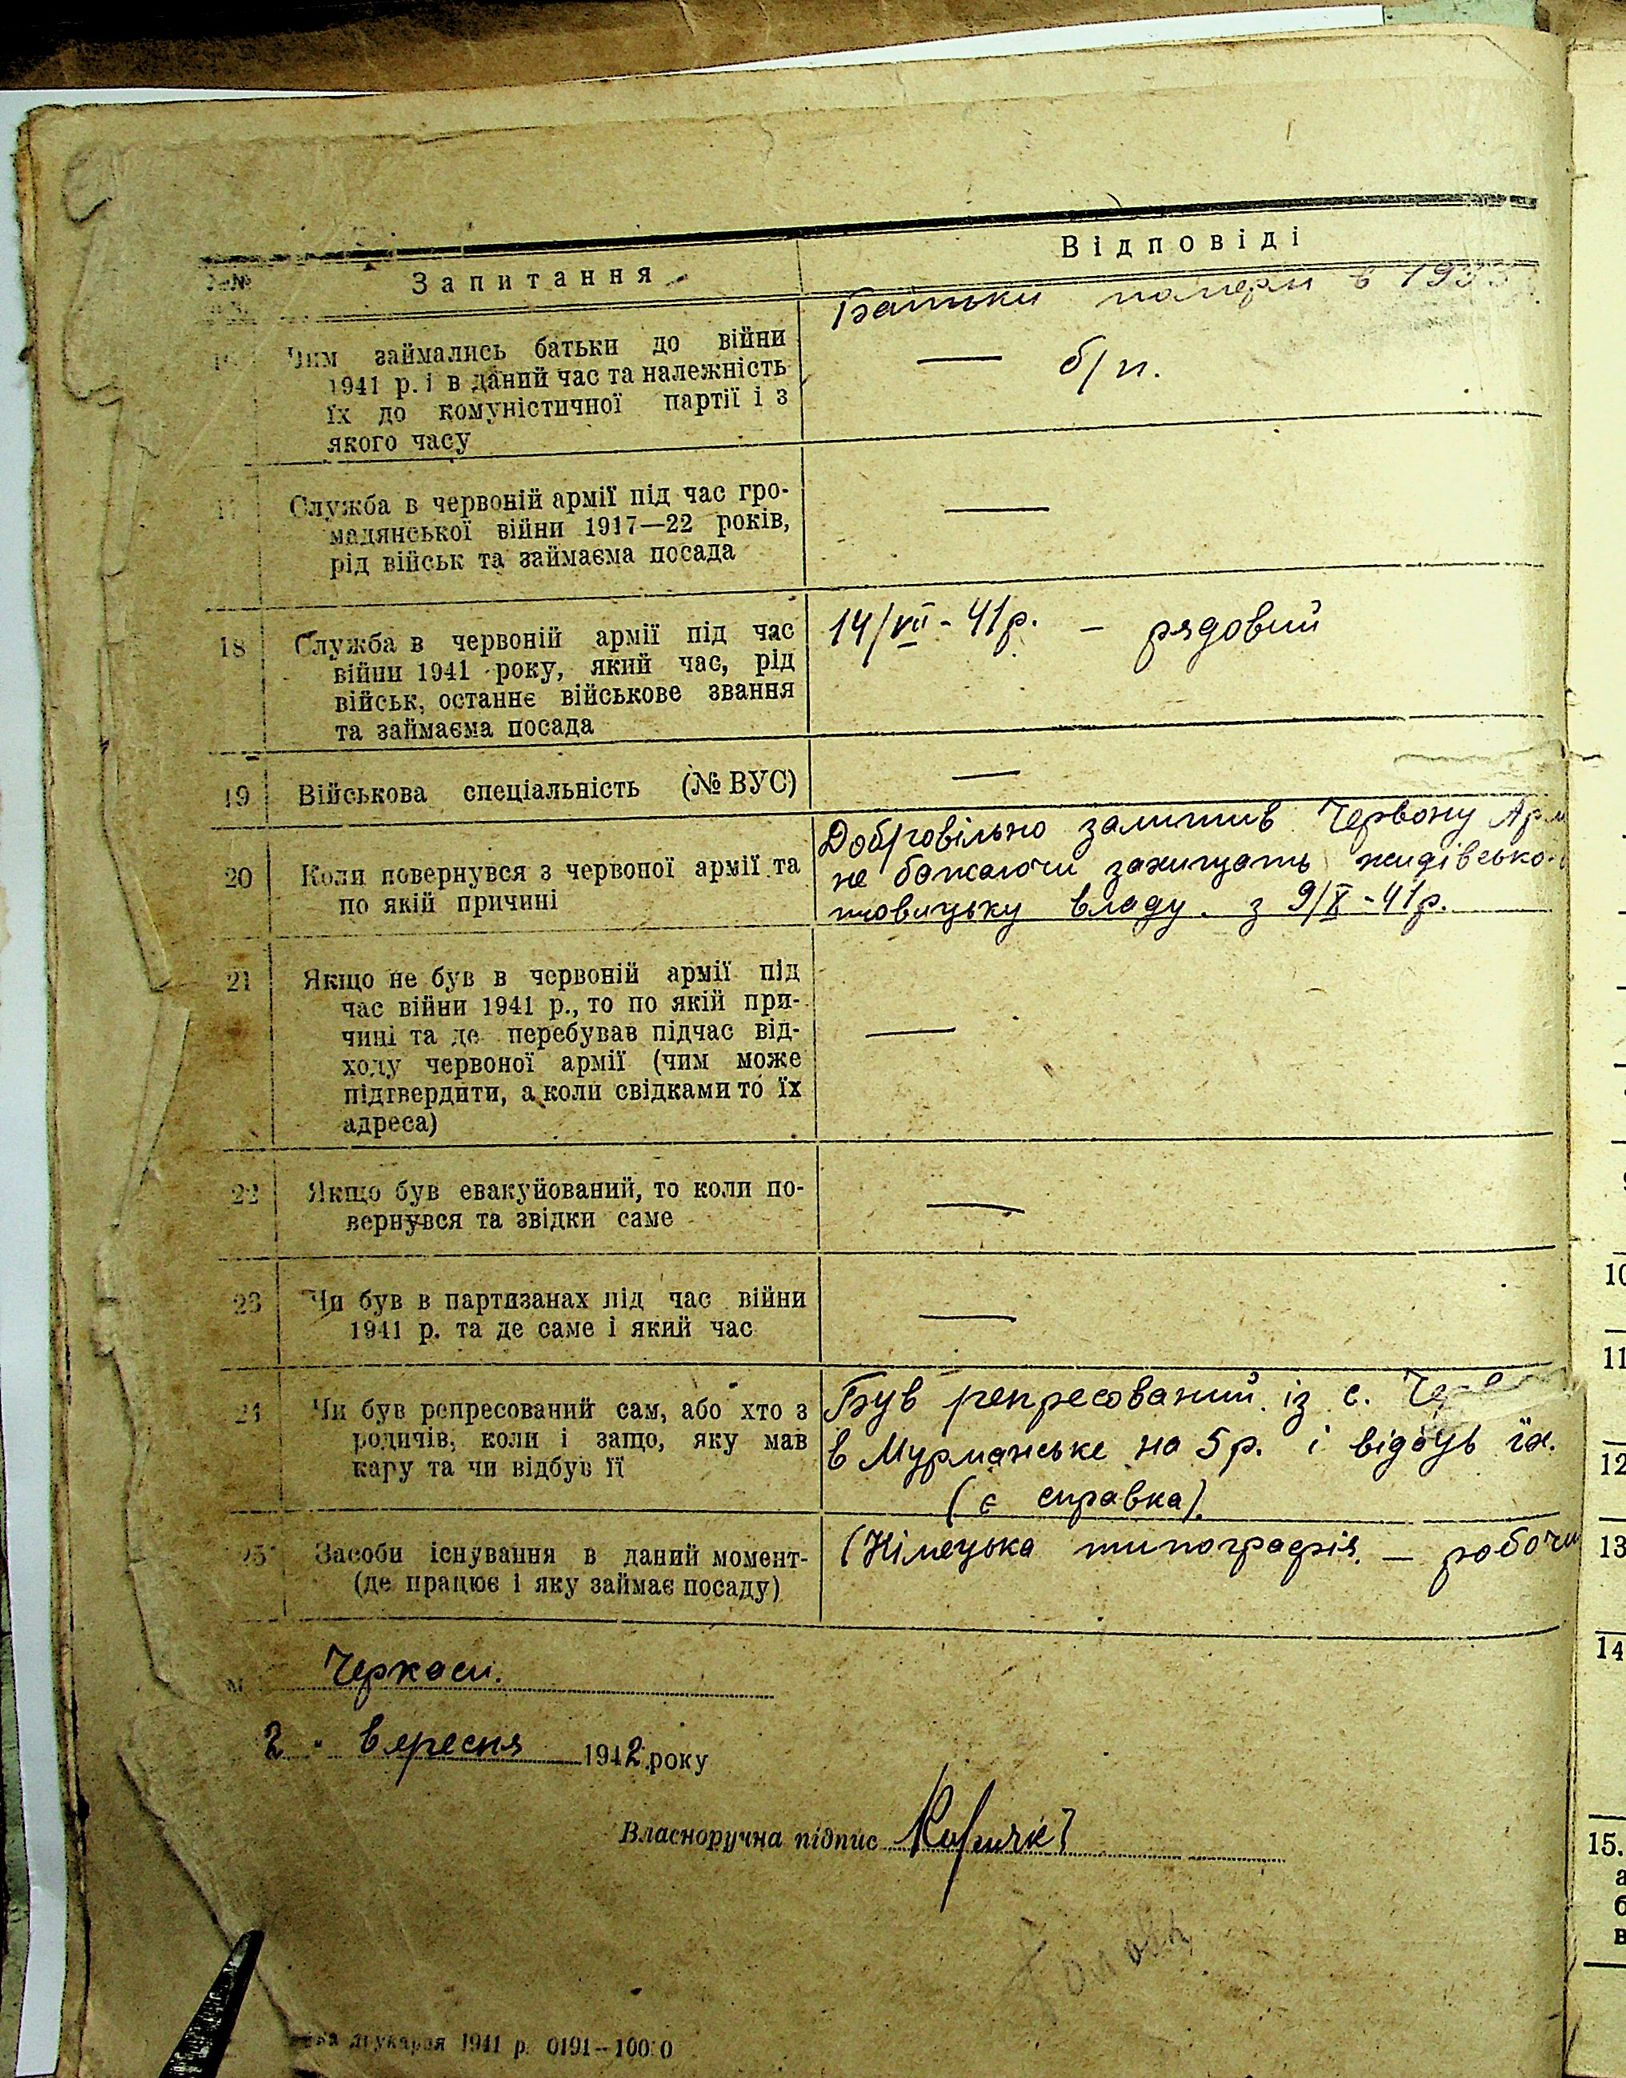 Запитання
Відповіді
Чим займались батьки до війни
1941 р. і в даний час та належність
їх до комуністичної партії і з
якого часу
Батьки померли в 1933
— б/п.
Служба в червоній армії під час гро-
мадянської війни 1917—22 років,
рід військ та займаєма посада
—
18
Служба в червоній армії під час
війни 1941 року, який час, рід
військ, останнє військове звання
та займаєма посада
14/VII - 41 р. — рядовий
19
Військова спеціальність (№ ВУС)
—
20
Коли повернувся з червоної армії та
по якій причині
Добровільно залишив Червону Арм
не бажаючи захищать жидівсько-
повицьку владу. з 9/X - 41 р.
21
Якщо не був в червоній армії під
час війни 1941 р., то по якій при-
чині та де перебував підчас від-
ходу червоної армії (чим може
підтвердити, а коли свідками то їх
адреса)
—
22
Якщо був евакуйований, то коли по-
вернувся та звідки саме
—
23
Чи був в партизанах під час війни
1941 р. та де саме і який час
—
24
Чи був репресований сам, або хто з
родичів, коли і защо, яку мав
кару та чи відбув її
Був репресований із с.
в Мурманське на 5 р. і відбув їх.
(є справка).
25
Засоби існування в даний момент-
(де працює і яку займає посаду)
(Німецька типографія. — робочи
м. Черкаси.
2 " вересня 1942 року
Власноручна підпис
друкарня 1941 р. 0191—
10
11
12
13
14
15.
а
б
в